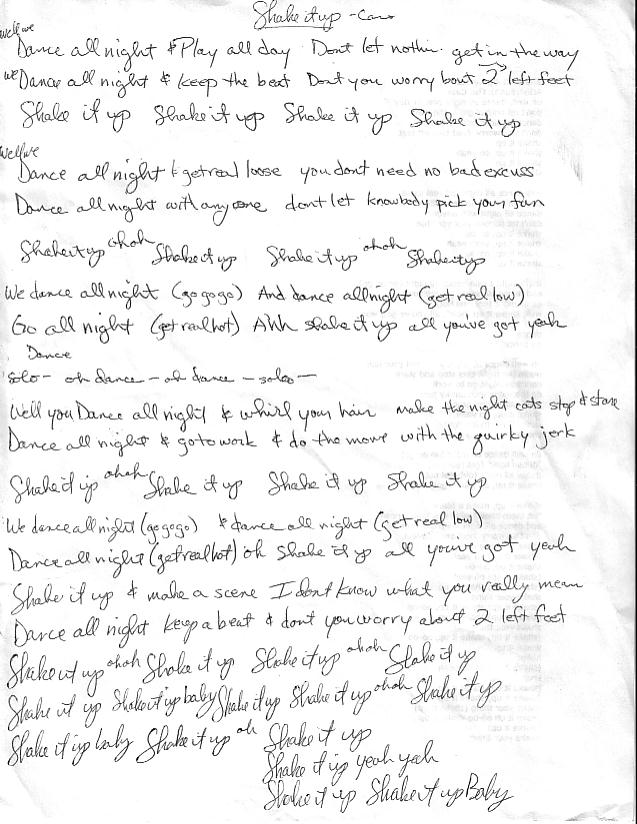 Shake it up - Cars
well we
Dance all night & Play all day Dont let nothin get in the way
we Dance all night & keep the beat Dont you worry bout 2 left feet
Shake it up Shake it up Shake it up Shake it up
well we
Dance all night & get real loose you dont need no bad excuss
Dance all night with anyone dont let knowbody pick your fun
Shake it up ohoh Shake it up Shake it up ohoh Shake it up
We dance all night (go go go) And dance all night (get real low)
Go all night (get real hot) Ahh shake it up all you've got yeah
Dance
solo - oh dance - oh dance - solo -
Well you Dance all night & whirl your hair make the night cats stop & stare
Dance all night & go to work & do the move with the quirky jerk
Shake it up ohoh Shake it up Shake it up Shake it up
We dance all night (go go go) & dance all night (get real low)
Dance all night (get real hot) oh Shake it up all you've got yeah
Shake it up & make a scene I dont know what you really mean
Dance all night keep a beat & dont you worry about 2 left feet
Shake it up ohoh Shake it up Shake it up ohoh Shake it up
Shake it up Shake it up baby Shake it up Shake it up ohoh Shake it up
Shake it up baby Shake it up oh Shake it up
Shake it up yeah yeah
Shake it up Shake it up Baby